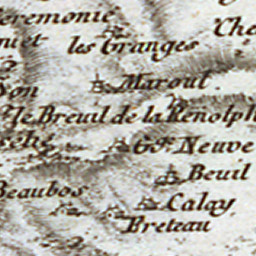 eremonie
les Granges
Che
Marout
son
le Breuil de la Renolph
Gde. Neuve
Beuil
Beaubos
Calay
Freteau